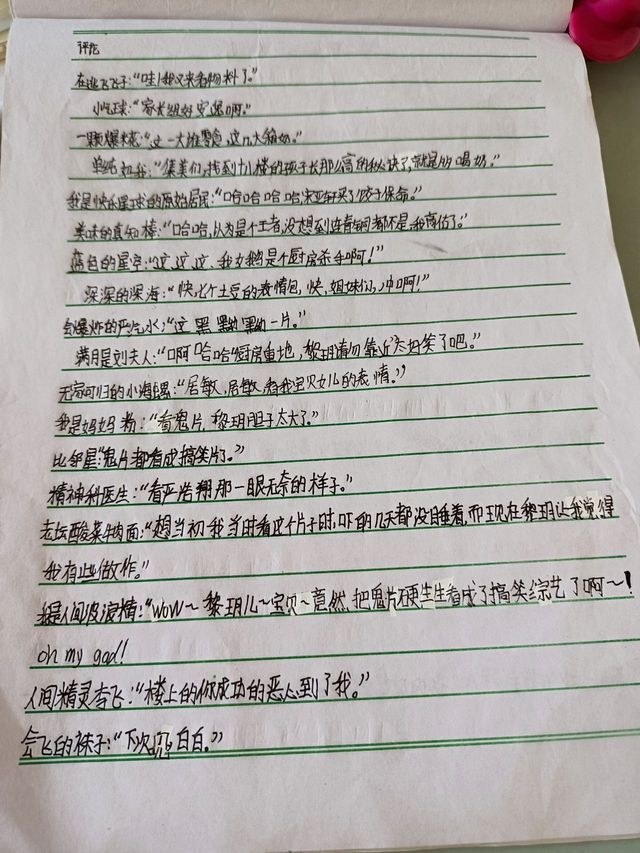 评论
在逃飞飞子：“哇！我又来看物料了。”
小吃球：“家长组好安逸啊。”
一颗爆米花：“这一大堆零食，这几大箱奶。”
单纯如我：“集美们，找到十八楼的孩子长那么高的秘诀了，就是多喝奶。”
我是快乐星球的原始居民：“哈哈哈哈宋亚轩买了饺子保命。”
美味的真知棒：“哈哈，以为是个王者，没想到连青铜都不是，我高估了。”
蓝色的星空：“这、这、这、我女鹅是个厨房杀手啊！”
深深的深海：“快，比个土豆的表情包，快，姐妹们，冲啊！”
会爆炸的严汽水：“这黑黝黝一片。”
满月是刘夫人：“啊哈哈“厨房重地，黎玥请勿靠近”太好笑了吧。”
无家可归的小海螺：“居敏，居敏，看我宝贝女儿的表情。”
我是妈妈粉：“看鬼片，黎玥胆子太大了。”
比邻星：“鬼片都看成搞笑片了。”
精神科医生：“看严浩翔那一眼无奈的样子。”
老坛酸菜牛肉面：“想当初我当时看这个片子时，吓的几天都没睡着，而现在黎玥让我觉得
我有些做作。”
我是人间波浪精：“wow～黎玥儿～宝贝～竟然把鬼片硬生生看成了搞笑综艺了啊～！
oh my god！
人间精灵李飞：“楼上的你成功的恶心到了我。”
会飞的袜子：“下次 白白。”